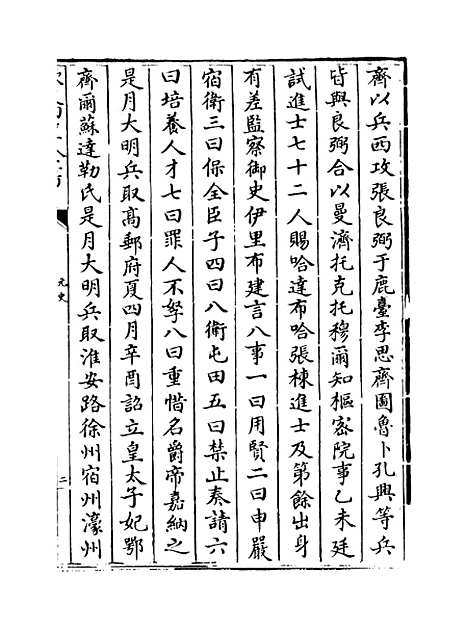 齊以兵西攻張良弼于鹿臺李思齊圖魯卜孔興等兵
皆與良弼合以曼濟托克托穆爾知樞密院事乙未廷
試進士七十二人賜哈達布哈張棟進士及第餘出身
有差監察御史伊里布建言八事一曰用賢二曰申嚴
宿衛三曰保全臣子四曰八衛屯田五曰禁止奏請六
曰培養人才七曰罪人不孥八曰重惜名爵帝嘉納之
是月大明兵取髙郵府夏四月辛酉詔立皇太子妃鄂
齊爾蘇達勒氏是月大明兵取淮安路徐州宿州濠州
元史
二